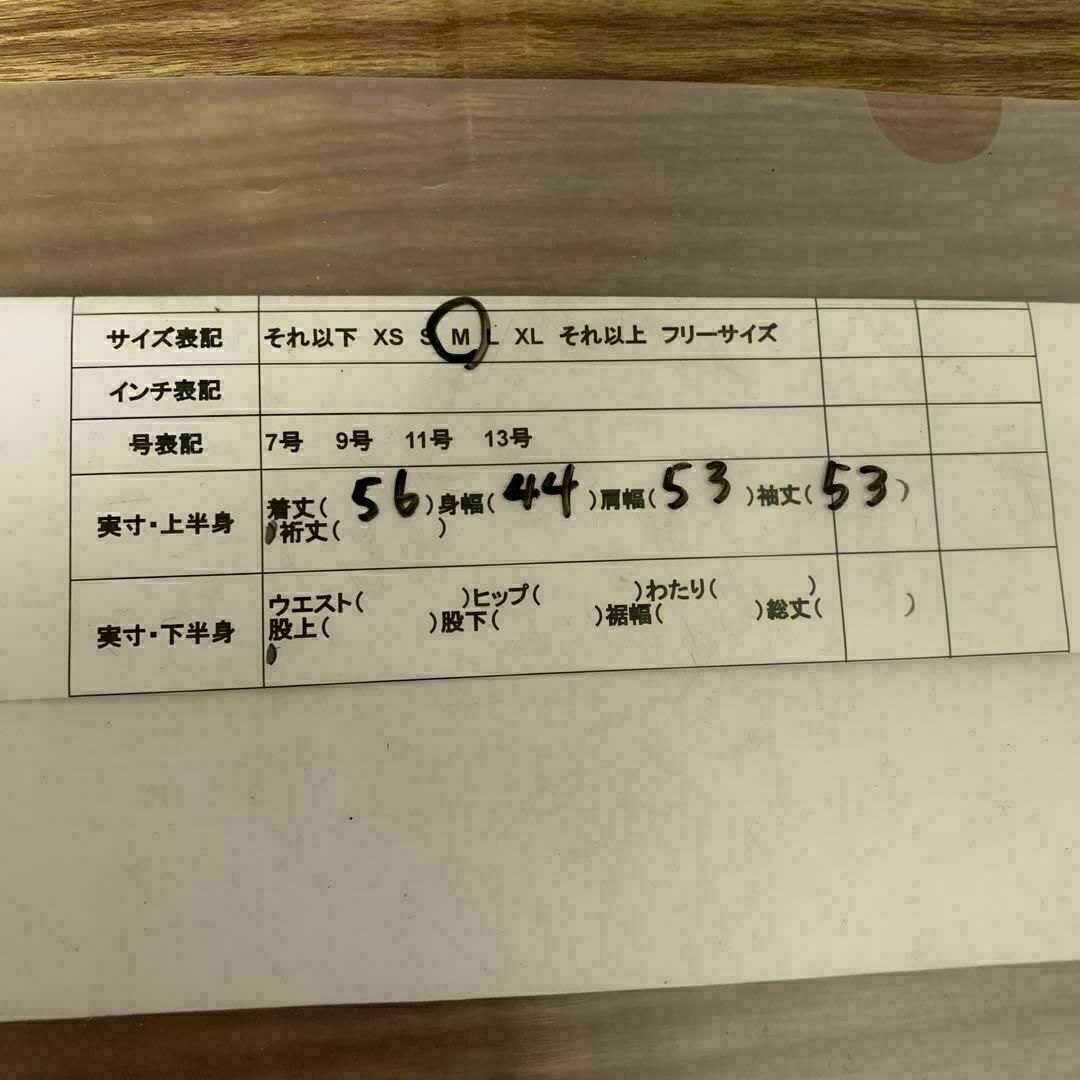 サイズ表記 それ以下 XS S M L XL それ以上 フリーサイズ
インチ表記
号表記 7号 9号 11号 13号
実寸・上半身 着丈( 56 )身幅( 44 )肩幅( 53 )袖丈( 53 )
)裄丈( )
実寸・下半身 ウエスト( )ヒップ( )わたり( )
股上( )股下( )裾幅( )総丈( )
)